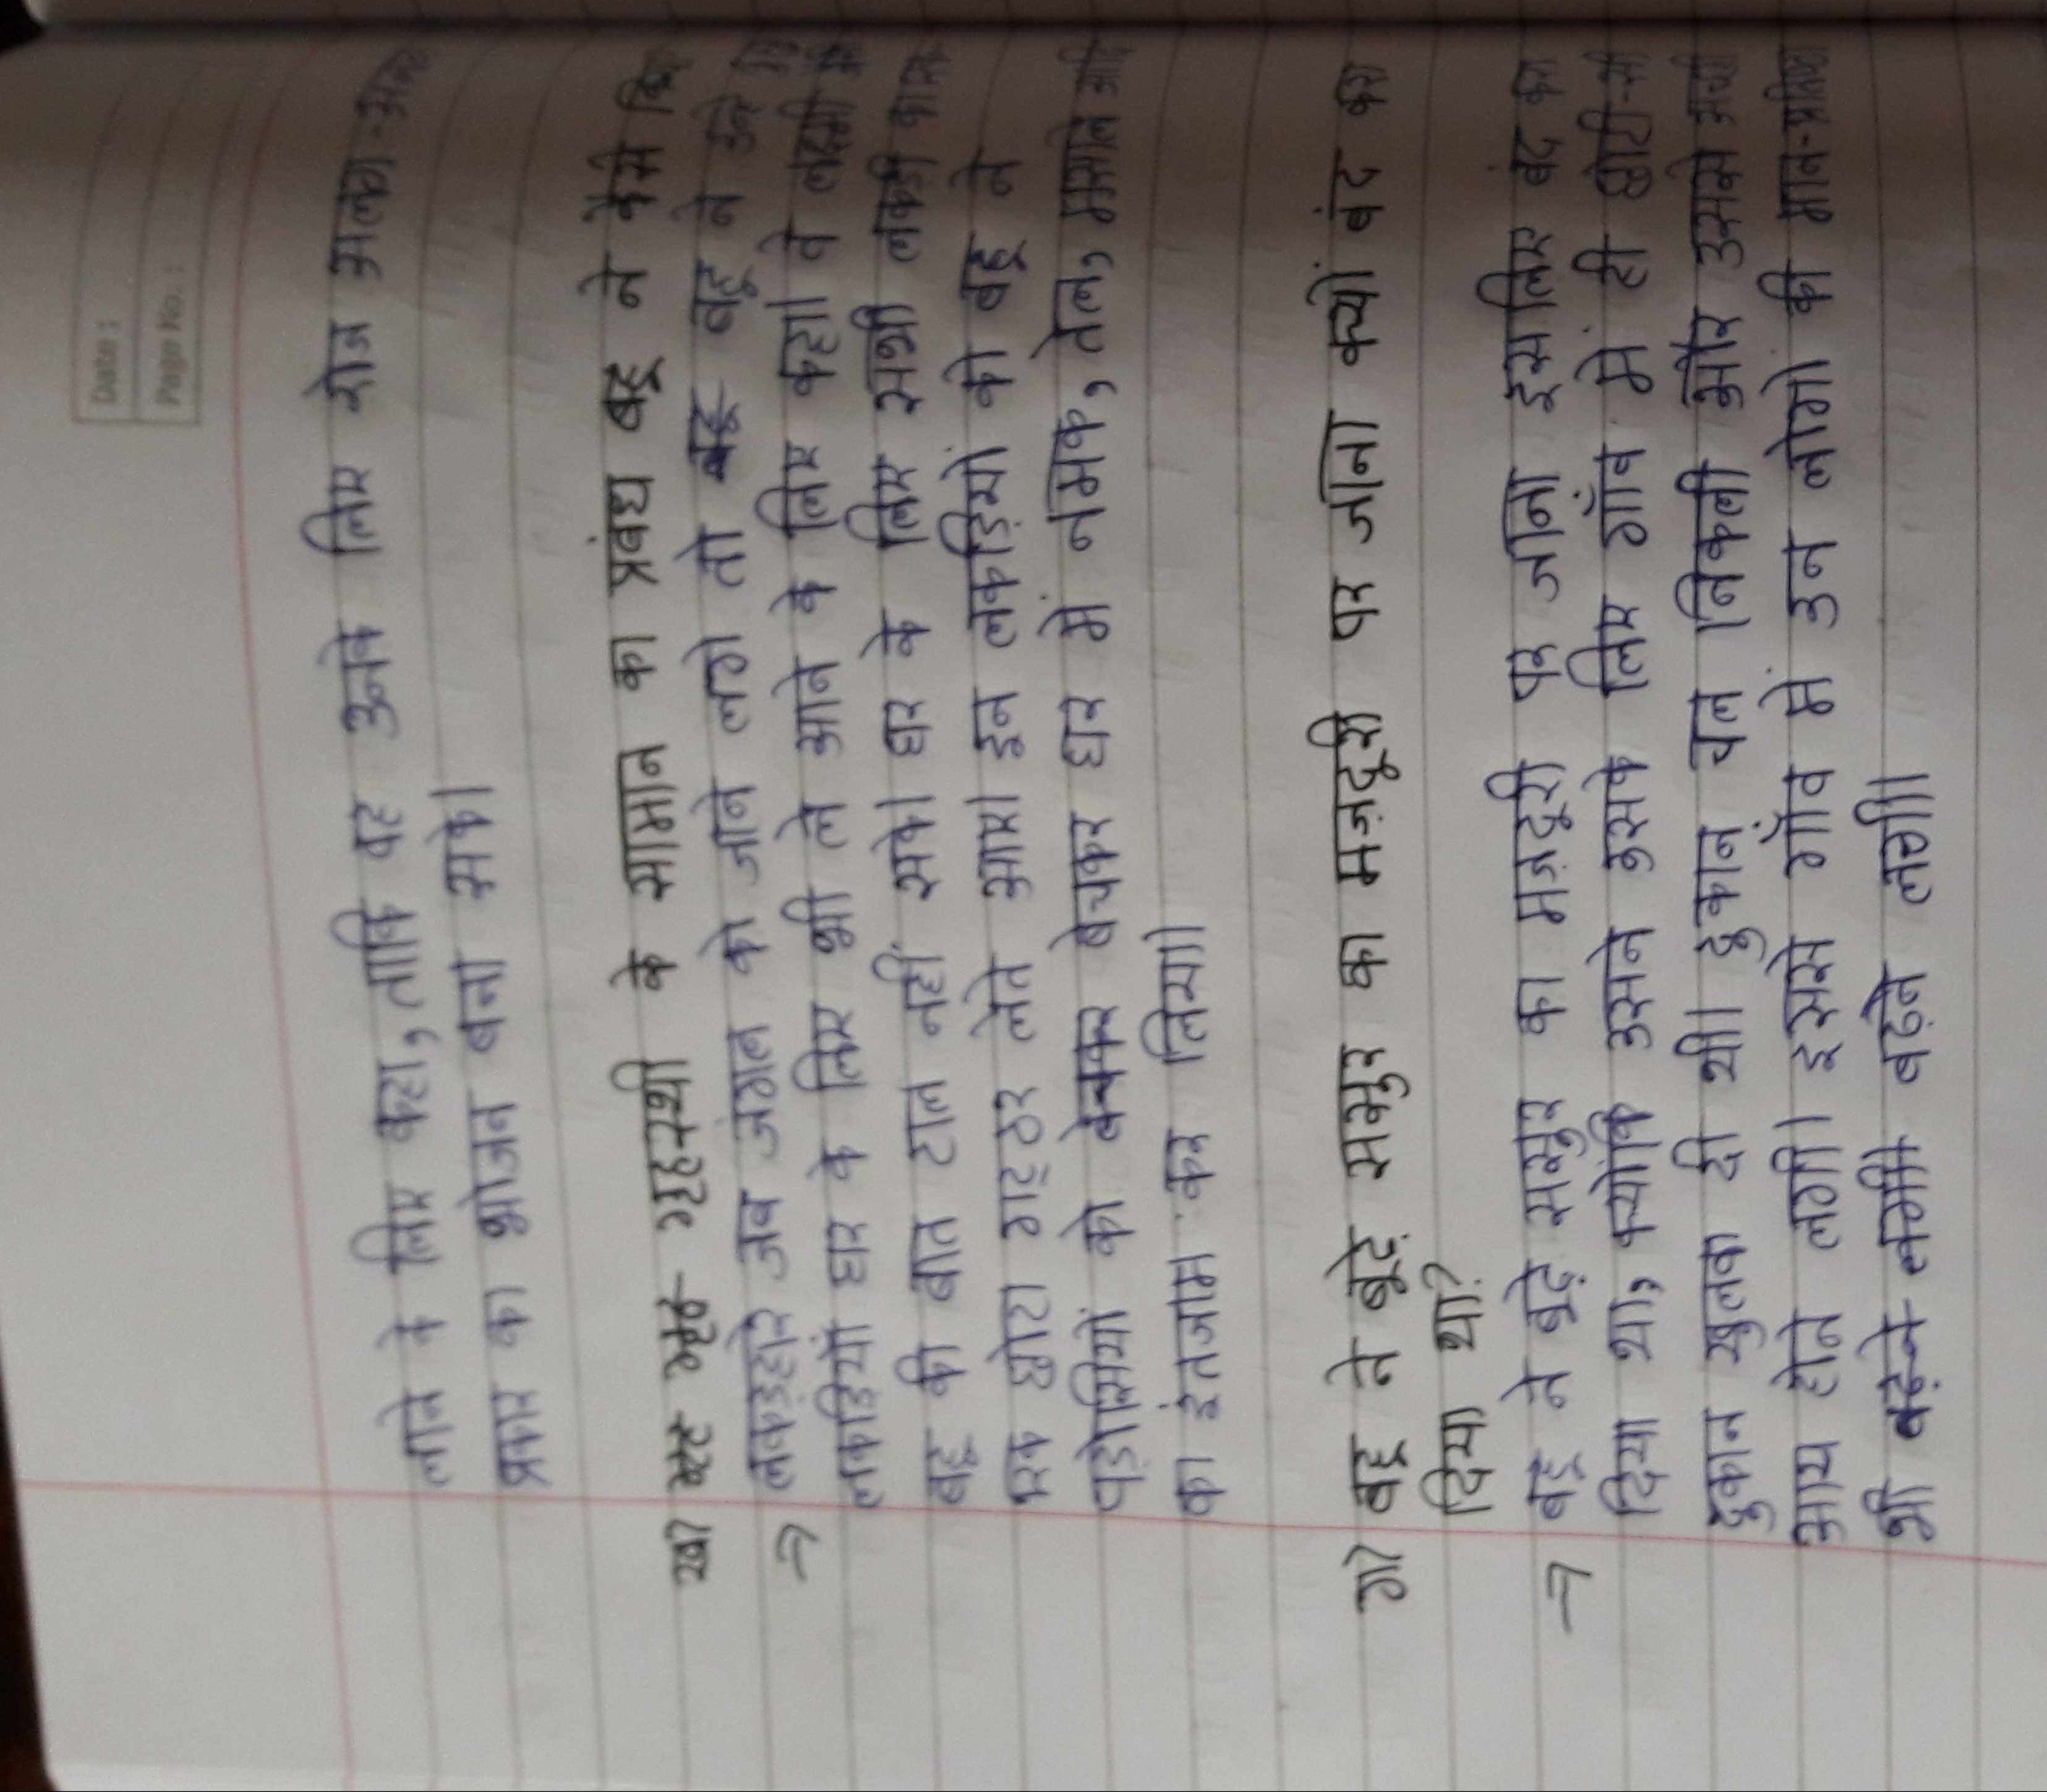 Date :
Page No. :
लाने के लिए कहा, ताकि वह उनके लिए रोज अलग-अलग
प्रकार का भोजन बना सके।
ख) गृहस्थी के सामान का प्रबंध बहू ने कैसे
→ लकड़हारे जब जंगल को जाने लगे तो बहू ने उन्हें
लकडियाँ घर के लिए भी ले आने के लिए कहा। वे लक्ष्मी
बहू की बात टाल नहीं सके। घर के लिए सभी लकड़ी का
एक छोटा गट्ठर लेते आए। इन लकड़ियों को बहू ने
पड़ोसियों को बेचकर घर में नमक, तेल, मसाले आदि
का इंतजाम कर लिया।
ग) बहू ने बुढ़े ससुर का मज़दूरी पर जाना क्यों बंद करा
दिया था?
→ बहू ने बुढ़े ससुर का मज़दूरी पर जाना इसलिए बंद करा
दिया था, क्योंकि उसने उसके लिए गाँव में ही छोटी-सी
दुकान खुलवा दी थी। दुकान चल निकली और उससे अच्छी
आय होने लगी। इससे गाँव में उन लोगों की मान-प्रतिष्ठा
भी बढ़ने लगी।